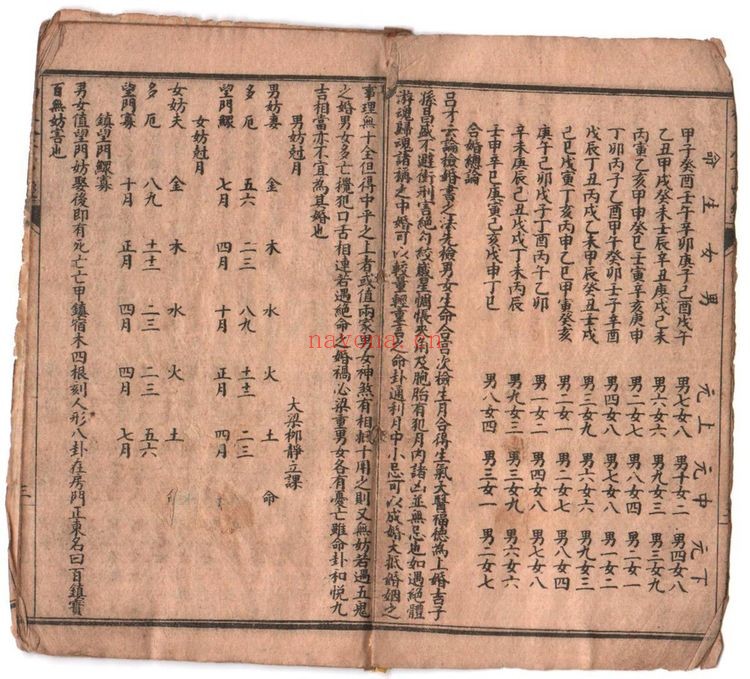 男女生命 上元 中元 下元
甲子癸酉壬午辛卯庚子己酉戊午 男七女八 男一女二 男四女八
乙丑甲戌癸未壬辰辛丑庚戌己未 男六女六 男九女三 男三女九
丙寅乙亥甲申癸巳壬寅辛亥庚申 男二女七 男八女四 男二女一
丁卯丙子乙酉甲午癸卯壬子辛酉 男四女八 男七女八 男一女二
戊辰丁丑丙戌乙未甲辰癸丑壬戌 男三女九 男六女六 男九女三
己巳戊寅丁亥丙申乙巳甲寅癸亥 男二女一 男二女七 男八女四
庚午己卯戊子丁酉丙午乙卯 男一女二 男四女八 男七女八
辛未庚辰己丑戊戌丁未丙辰 男九女三 男三女九 男六女六
壬申辛巳庚寅己亥戊申丁巳 男八女四 男二女一 男二女七
合婚總論
呂才云論檢婚書之法先檢男女生命合呂次檢生月合得生氣天醫福德為上婚吉子
孫昌盛不避衝刑害絕勾絞歲星惆悵夾角及胞胎有犯月內諸凶並無忌也如遇絕體
游魂歸魂諸稱之中婚可以較量輕重言之命卦通利月中小忌可以成婚大抵婚姻之
事理無十全但得中平之上者或值兩家男女神煞有相牴十用之則又無妨若遇五鬼
之婚男女多亡攪犯口舌相連若遇絕命之婚禍必梁重男女各有憂亡雖命卦和悅九
吉相當亦不宜為其婚也 大梁柳靜立課
男妨尅月
男妨妻 金 木 水 火 土 命
多厄 五六 二三 八九 十十二 二三
望門鰥 七月 四月 十月 正月 四月
女妨尅月
女妨夫 金 木 水 火 土
多厄 八九 十十二 二三 二三 五六
望門寡 十月 正月 四月 四月 七月
鎮望門鰥寡
男女值望門妨娶後即有死亡亡甲鎮宿木四根刻人形八卦在房門正東名曰百鎮賓
百無妨害也
三
nayona.cn